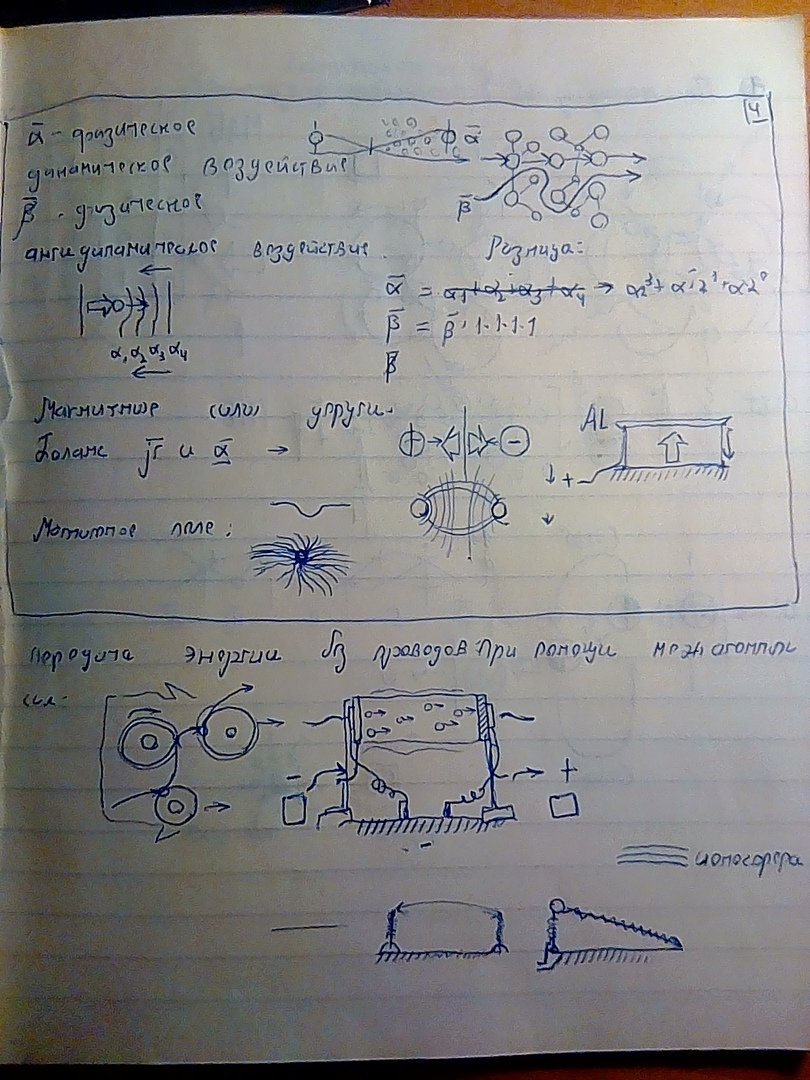 4
ᾱ - физическое
динамическое воздействие
ᾱ
β̄ - физическое
β̄
антидинамическое воздействие.
Разница:
ᾱ = α₁+α₂+α₃+α₄ →
β̄ = β̄·1·1·1·1
β̄
α₁ α₂ α₃ α₄
Магнитные силы упруги.
Баланс и ᾱ →
+ -
AL
+
Магнитное поле:
Передача энергии без проводов при помощи межатомных
сил.
- +
-
ионосфера